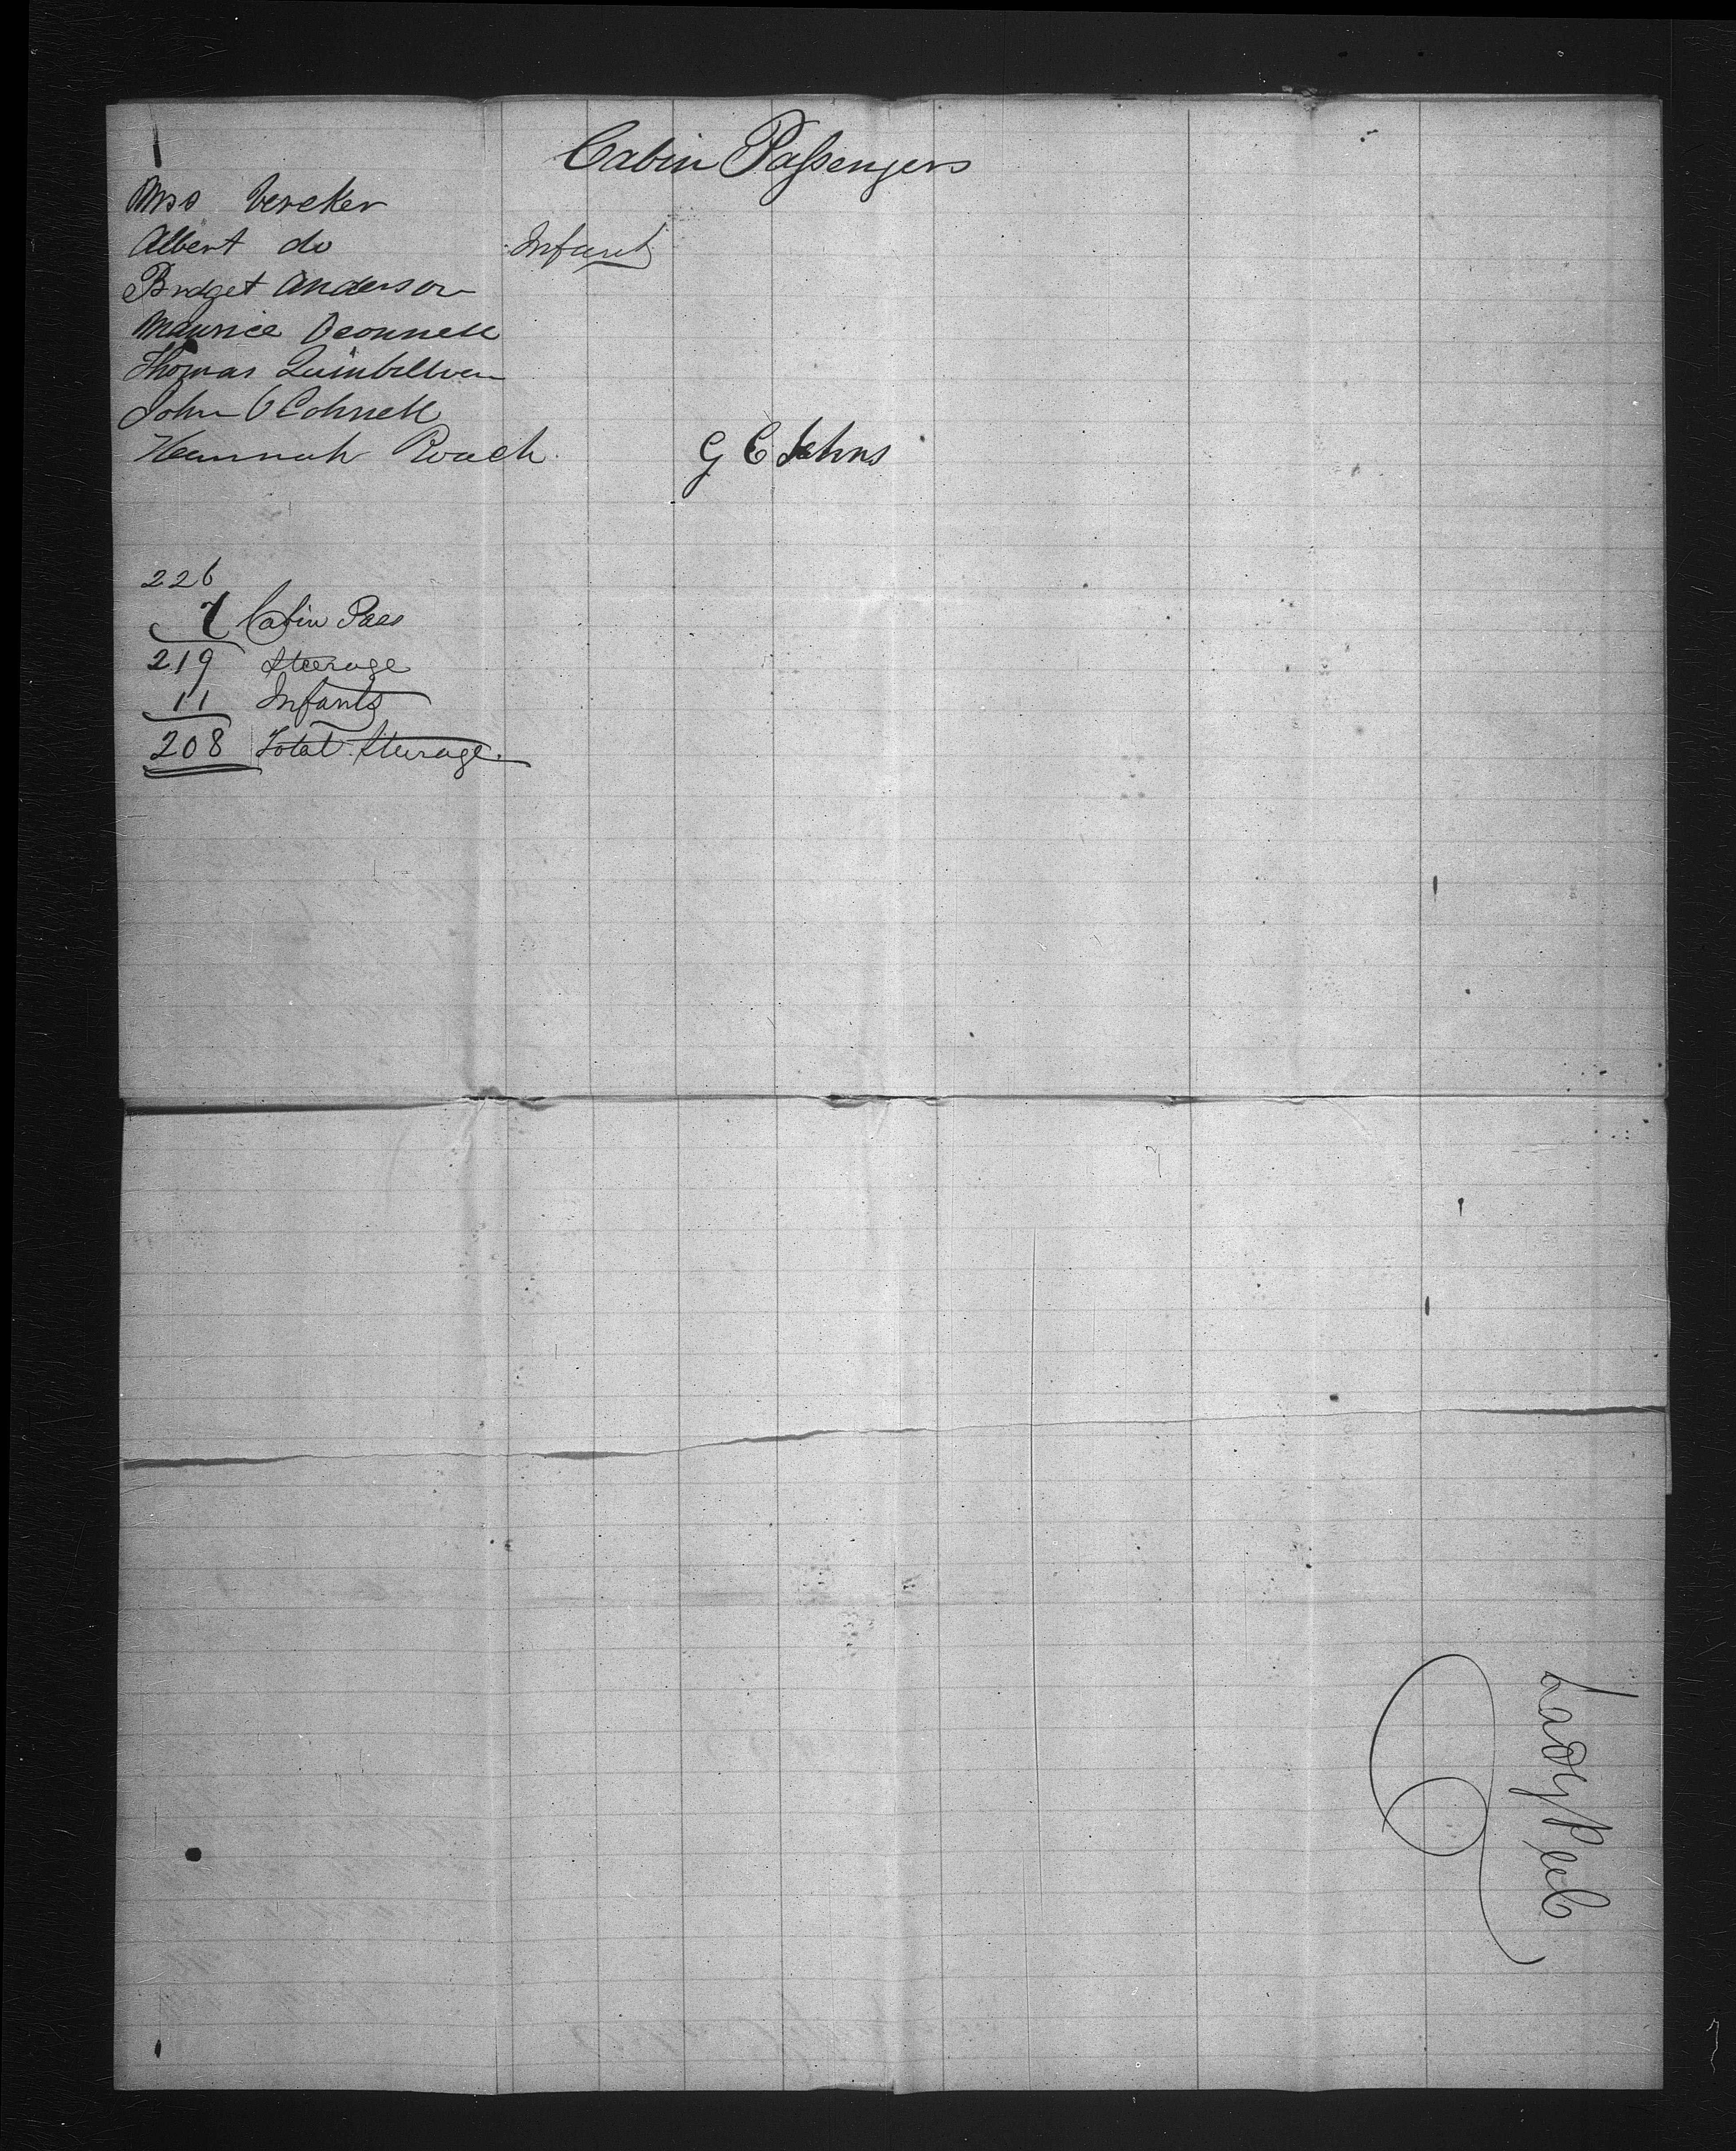 Cabin Passengers
Mrs Vereker
Albert do Infant
Bridget Anderson
Maurice Oconnell
Thomas
John O Connell
Hannah Roach
G C Johns
226
7 Cabin Pass
219 Steerage
11 Infants
208 Total Steerage.
Lady Peel